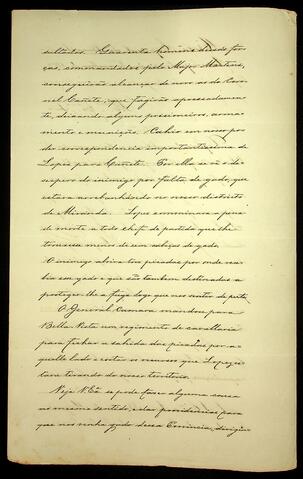 sultados. Quarenta homens dessas for-
ças, commandados pelo Major Martins,
conseguirão alcançar de novo as do Coro-
nel Cañete, que fugirão apressadamen-
te, deixando alguns prisioneiros, arma-
mento e munição. Cahio em nosso po-
der correspondencia importantissima de
Lopes para Cañete. Por ella se vê o de-
sespero do inimigo por falta de gado, que
estava arrebanhando no nosso districto
de Miranda. Lopes comminara a pena
de morte a todo chefe de partida que lhe
trouxesse menos de cem cabeças de gado.
O inimigo abrira tres picadas por onde rece-
bia esse gado e que são tambem destinadas a
proteger-lhe a fuga logo que nos sentir de perto.
O General Camara mandou para
Bella Vista um regimento de cavallaria
para fechar a sahida das picadas por a-
quelle lado e cortar os recursos que Lopez es-
tava tirando do nosso territorio.
Veja V. Ex.ª se pode fazer alguma cousa
no mesmo sentido, e dar providencias para
que nos venha gado dessa Provincia, dirigin-